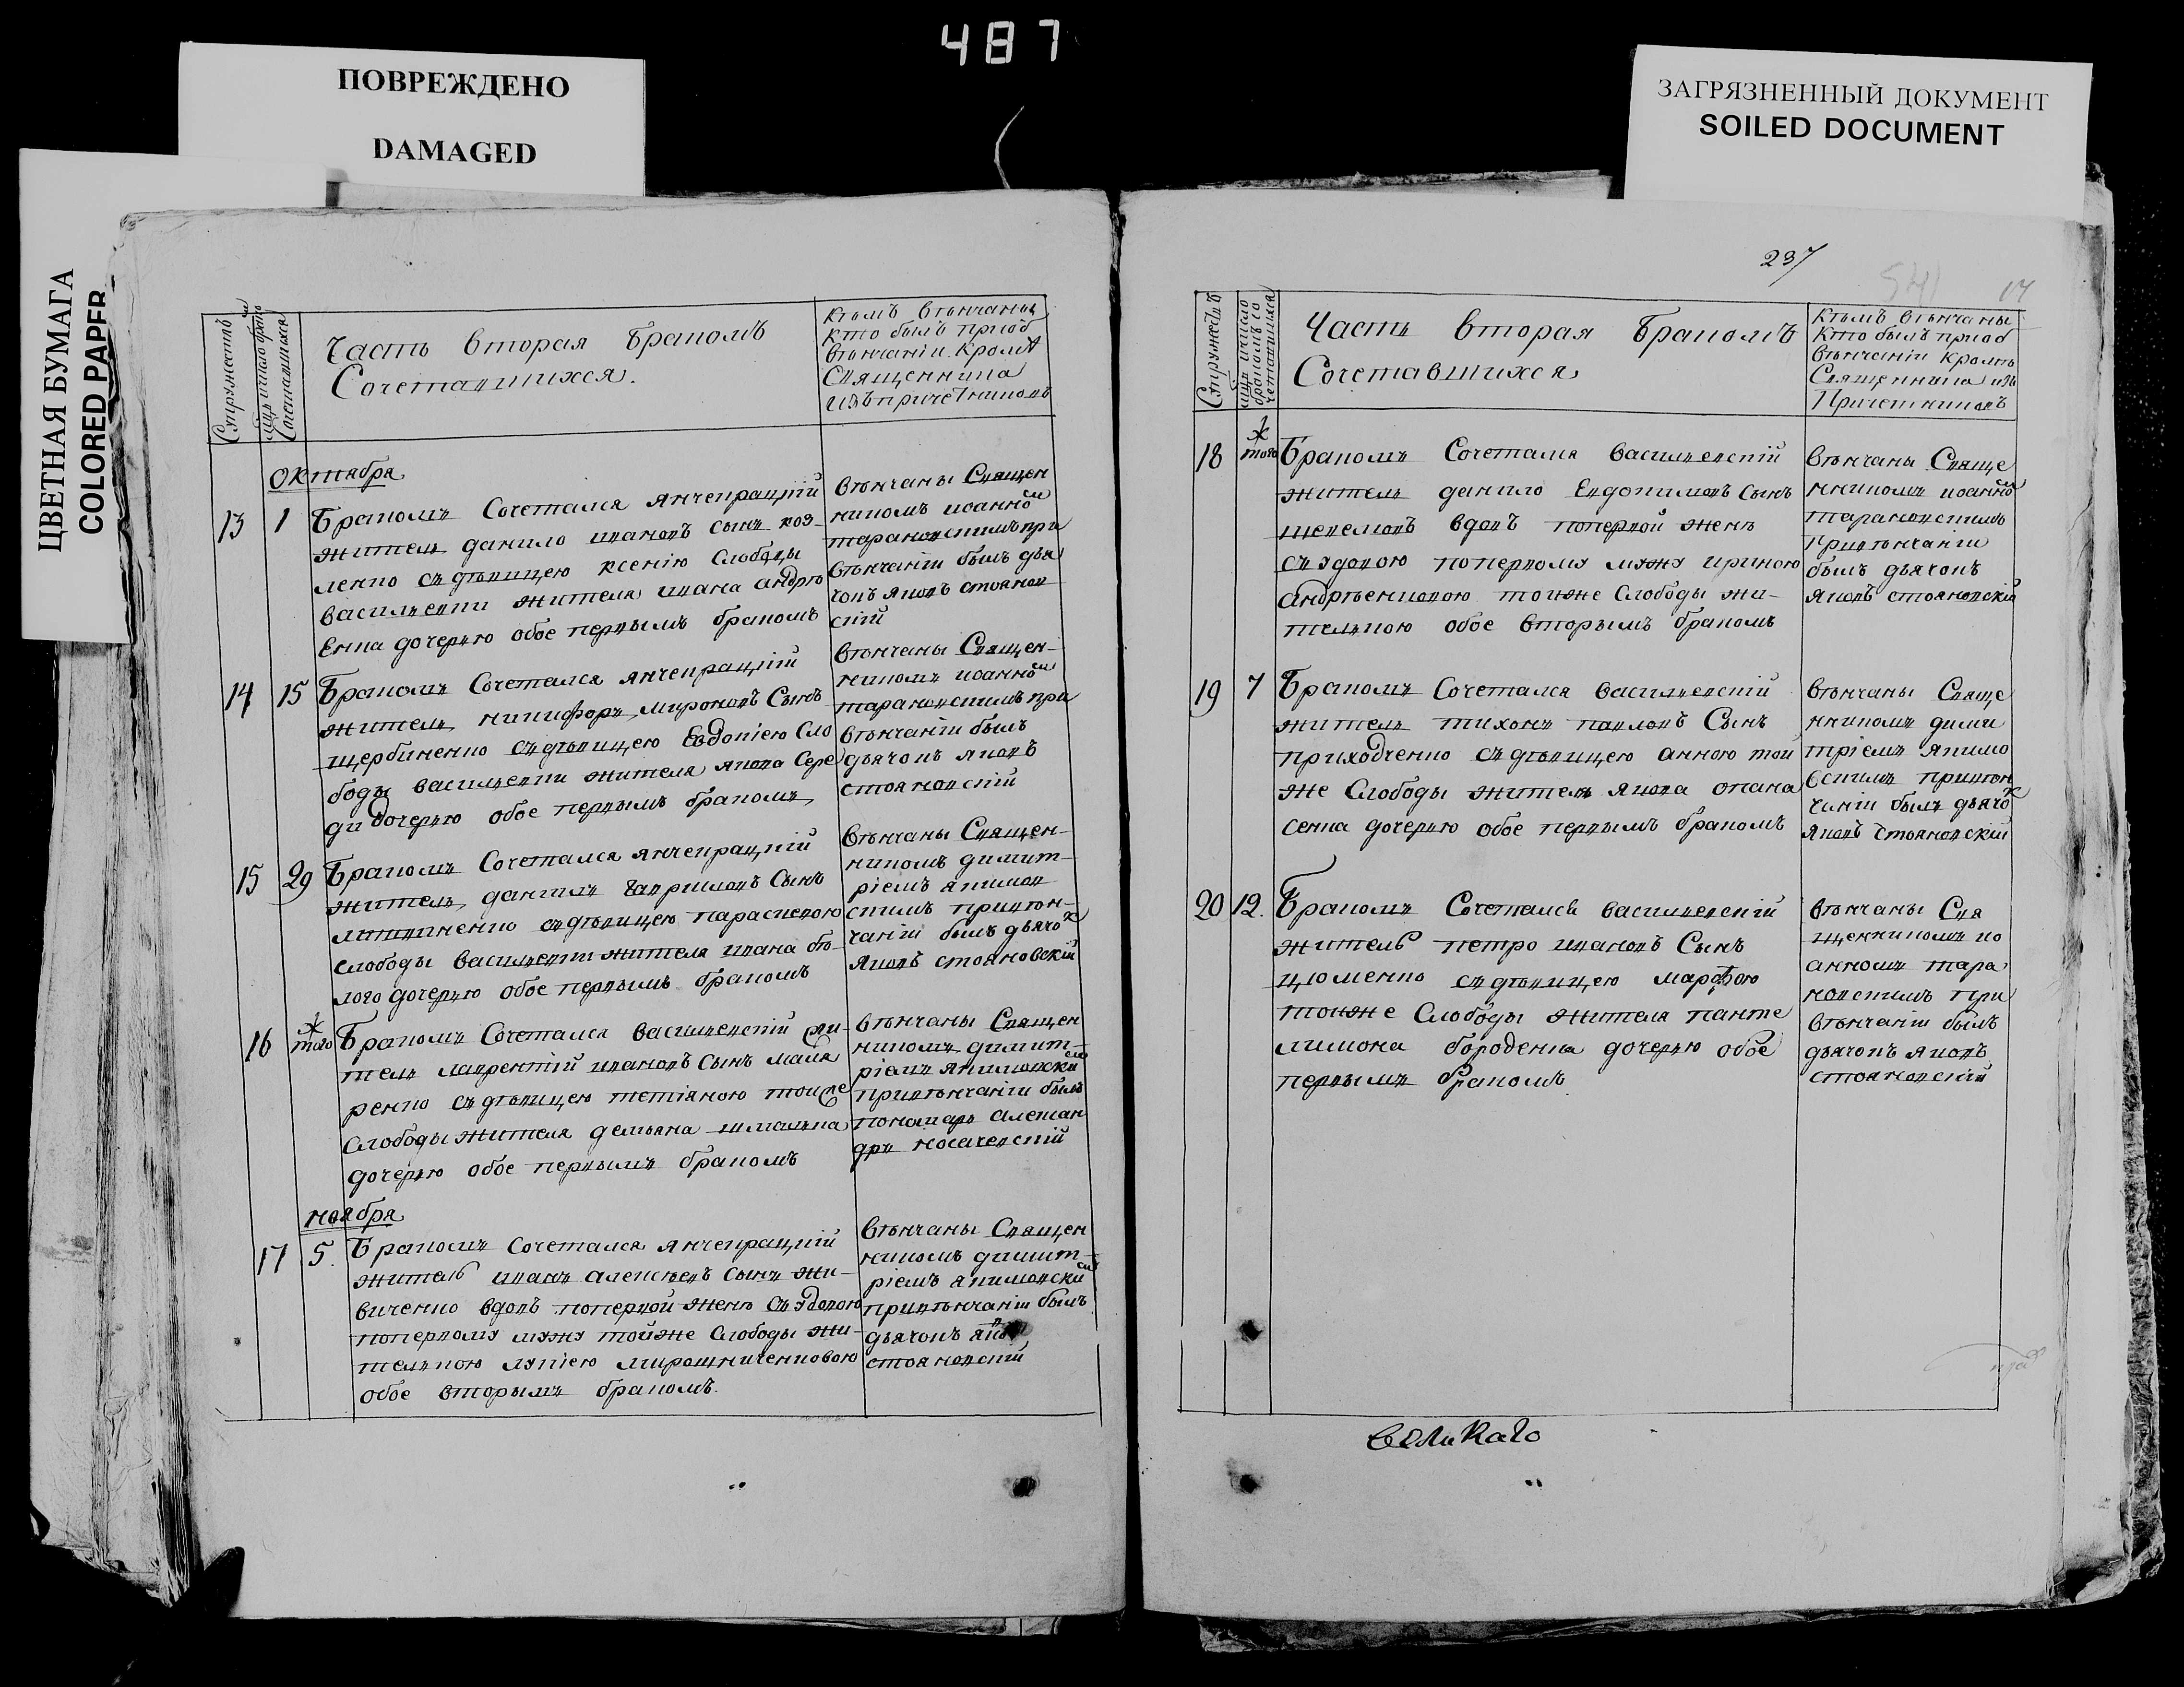 487
ПОВРЕЖДЕНО
DAMAGED
ЦВЕТНАЯ БУМАГА
COLORED PAPER
ЗАГРЯЗНЕННЫЙ ДОКУМЕНТ
SOILED DOCUMENT
Часть вторая бракомъ
Сочетавшихся.
кѣмъ вѣнчаны
кто былъ приоб
вѣнчаніи кромѣ
Священника
изъ причетниковъ
октября
13 1 Бракомъ Сочетался янчекрацкій
житель данило ивановъ сынъ коз-
ленко съ дѣвицею ксенію Слободы
василевки жителя ивана андрю
Енка дочерью обое первымъ бракомъ
вѣнчаны Священ
никомъ иоанно
тарановскимъ при
вѣнчаніи былъ дья
чокъ яковъ стоянов
скій
14 15 Бракомъ Сочетался янчекрацкій
житель никифоръ мироновъ Сынъ
щербиненко съ дѣвицею Евдокіею Сло
боды василевки жителя якова Сере
ди дочерью обое первымъ бракомъ
вѣнчаны Священ-
никомъ иоанно
тарановскимъ при
вѣнчаніи былъ
дьячокъ яковъ
стояновскій
15 29 Бракомъ Сочетался янчекрацкій
житель даніилъ гавриловъ Сынъ
съ дѣвицею параскевою
Слободы василевки жителя ивана бѣ-
лого дочерью обое первымъ бракомъ
вѣнчаны Священ-
никомъ димит-
ріемъ якимов
скимъ привѣн-
чаніи былъ дьячо к
яковъ стояновскій
16 того ж Бракомъ Сочетался василевскій жи-
тель лаврентій ивановъ Сынъ мака
ренко съ дѣвицею тетіяною тоиже
Слободы жителя демьяна шмалька
дочерью обое первымъ бракомъ
вѣнчаны Священ
никомъ димит-
ріемъ якимовски мъ
привѣнчаніи былъ
пономарь алексан
дръ носачевскій
ноября
17 5. Бракомъ Сочетался янчекрацкій
житель иванъ алексѣевъ сынъ жи-
виченко вдовъ поперкой женѣ съ вдовою
поперкому мужу тойже Слободы жи-
телькою лукіею мирошниченковою
обое вторымъ бракомъ.
вѣнчаны Священ
никомъ димит-
ріемъ якимовски мъ
привѣнчаніи былъ
дьячокъ
стояновскій
237
541
17
Часть вторая бракомъ
Сочетавшихся
кѣмъ вѣнчаны
кто былъ приоб
вѣнчаніи кромѣ
Священника изъ
Причетниковъ
18 того ж Бракомъ Сочетался василевскій
житель данило Евдокимовъ сынъ
щекелювъ вдовъ поперкой женѣ
съ вдовою поперкому мужу ириною
андрѣенковою тоиже Слободы жи-
телькою обое вторымъ бракомъ
вѣнчаны Свяще
нникомъ иоанно
тарановскимъ
привѣнчаніи
былъ дьячокъ
яковъ стояновскій
19 7 Бракомъ Сочетался василевскій
житель тихонъ павловъ Сынъ
приходченко съ дѣвицею анною той
же Слободы жителя якова опана
сенка дочерью обое первымъ бракомъ
вѣнчаны Свяще
нникомъ дими
тріемъ якимо
вскимъ привѣн
чаніи былъ дьячо к
яковъ стояновскій
20 12. Бракомъ Сочетался василевскій
житель петро ивановъ Сынъ
цюменко съ дѣвицею марфою
тоиже Слободы жителя панте
лимона бороденка дочерью обое
первымъ бракомъ
вѣнчаны Свя
щенникомъ ио
анномъ тара
новскимъ при
вѣнчаніи былъ
дьячокъ яковъ
стояновскій
великаго